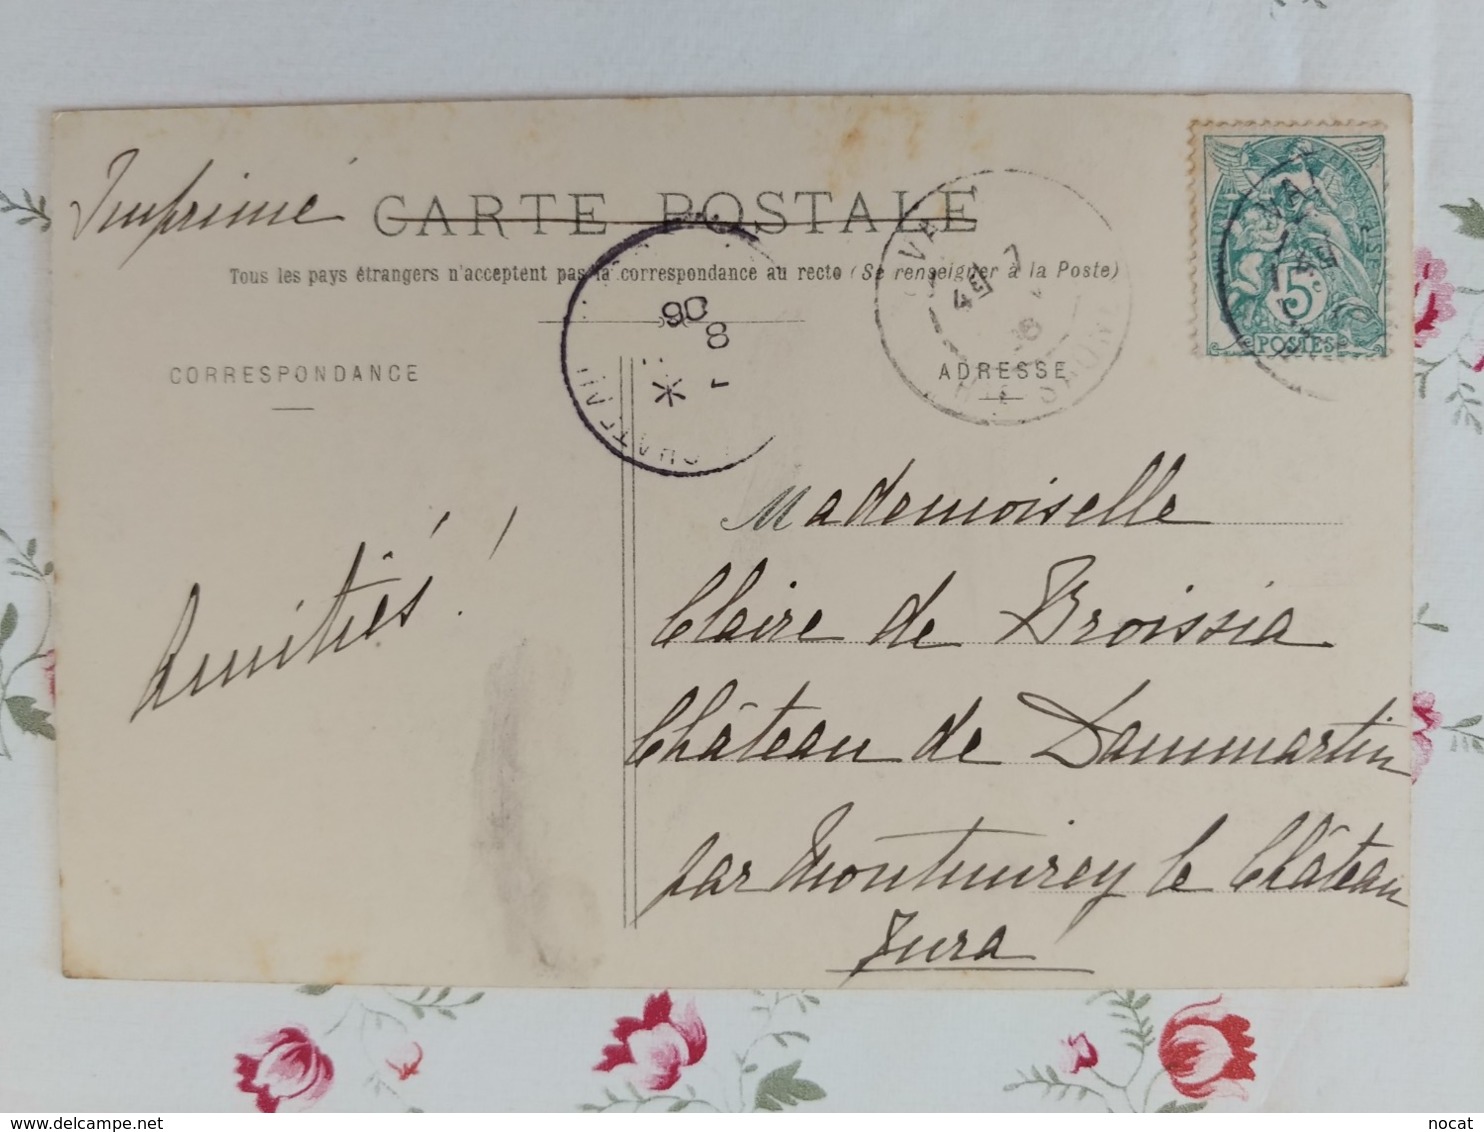 Imprimé
CARTE POSTALE
Tous les pays étrangers n'acceptent pas la correspondance au recto (Se renseigner à la Poste)
CORRESPONDANCE
ADRESSE
5c
POSTES
8
06
Amitiés !
Mademoiselle
Claire de Broissia
Château de Dammartin
par Montmirey le Château
Jura
www.delcampe.net
nocat